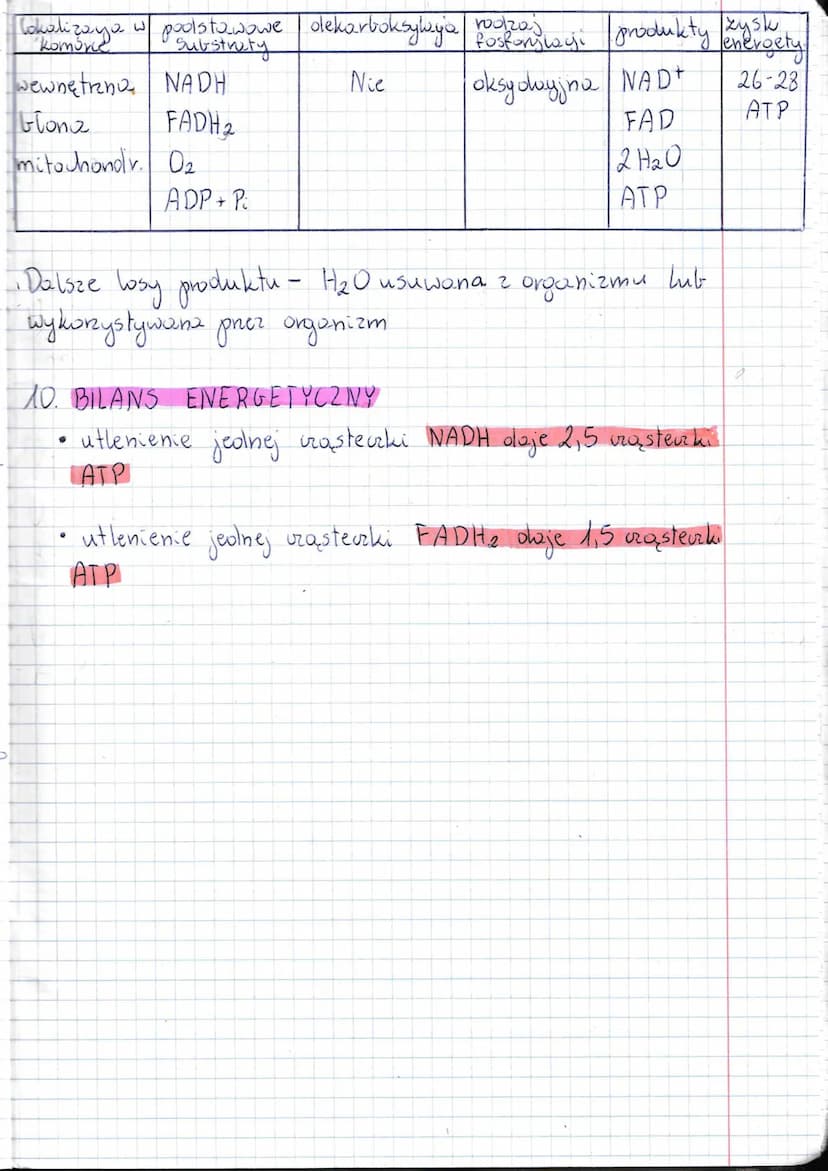 lokalizacja w podstawowe dekarboksylacja rodzaj produkty zysk
komórce substraty fosforylacji energety.
wewnętrzna NADH Nie oksydacyjna NAD⁺ 26-28
błona FADH₂ FAD ATP
mitochondr. O₂ 2H₂O
ADP + Pi ATP
Dalsze losy produktu - H₂O usuwana z organizmu lub
wykorzystywana przez organizm
10. BILANS ENERGETYCZNY
• utlenienie jednej cząsteczki NADH daje 2,5 cząsteczki
ATP
• utlenienie jednej cząsteczki FADH₂ daje 1,5 cząsteczki
ATP